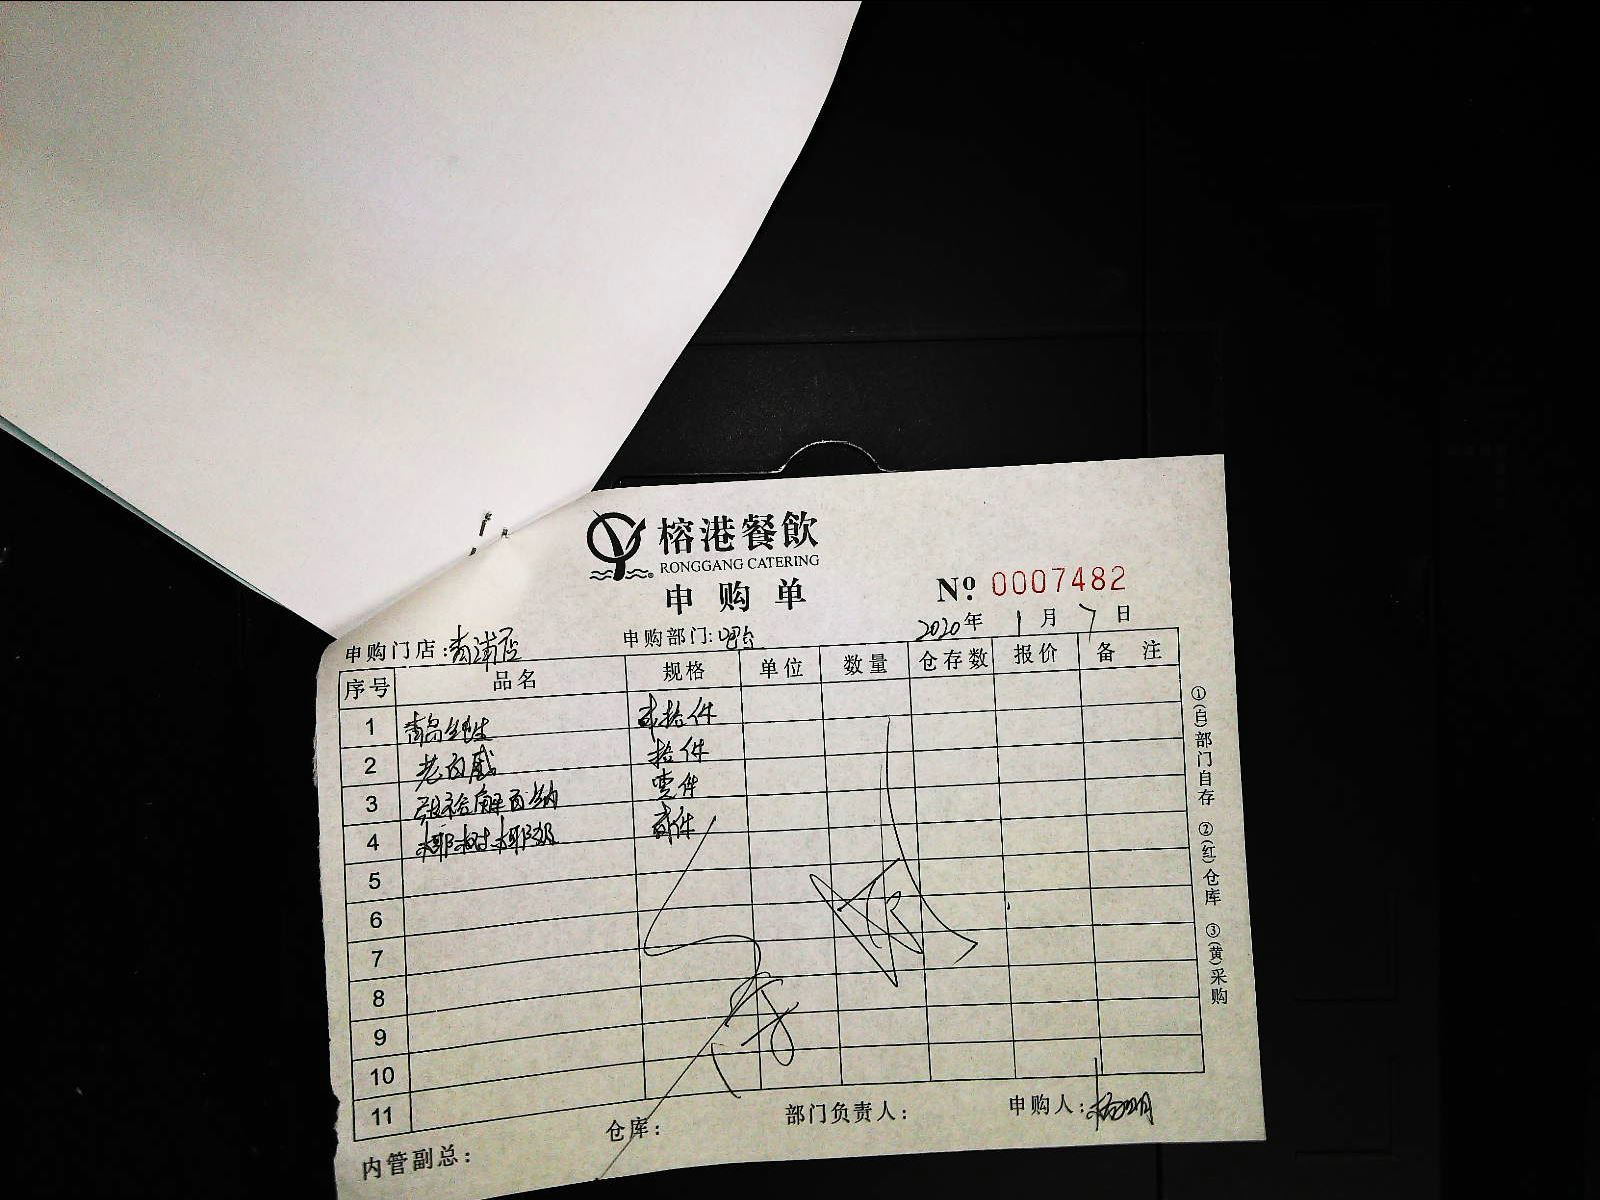 榕港餐飲
RONGGANG CATERING
申购单
Nº. 0007482
2020年 1月 7日
申购门店:青浦店 申购部门:吧台
序号 品名 规格 单位 数量 仓存数 报价 备注
1 青岛纯生 贰拾件
2 老白威 拾件
3 张裕解百纳 壹件
4 椰树椰汁 贰件
5
6
7
8
9
10
11
内管副总: 仓库: 部门负责人: 申购人:
①(白)部门自存 ②(红)仓库 ③(黄)采购